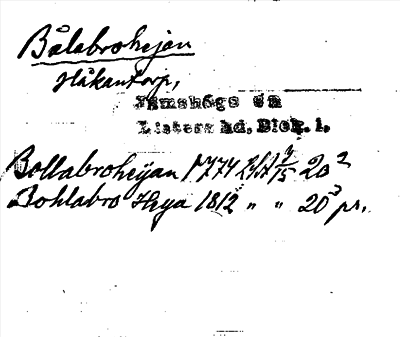 Bålabrohejan
Håkantorp,
Jämshögs sn
Listers hd, Blek. l.
Bollabroheijan 1774 LSA 20²
Bohlabro Heya 1812 " " 20³ pr.